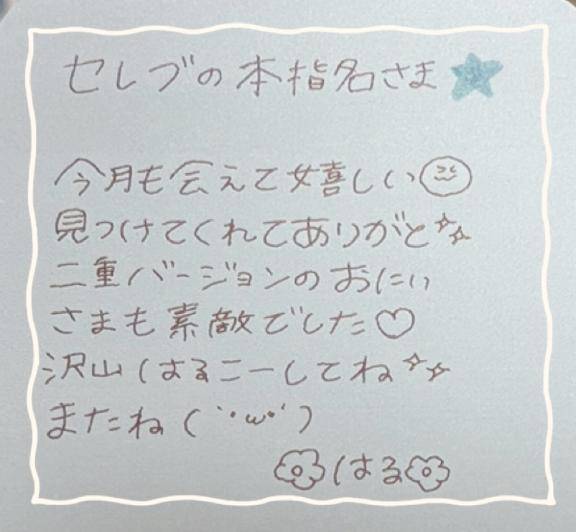 セレブの本指名さま★
今月も会えて嬉しい
見つけてくれてありがと✨
二重バージョンのおにい
さまも素敵でした♡
沢山はるこーしてね✨
またね(´･ω･`)
はる